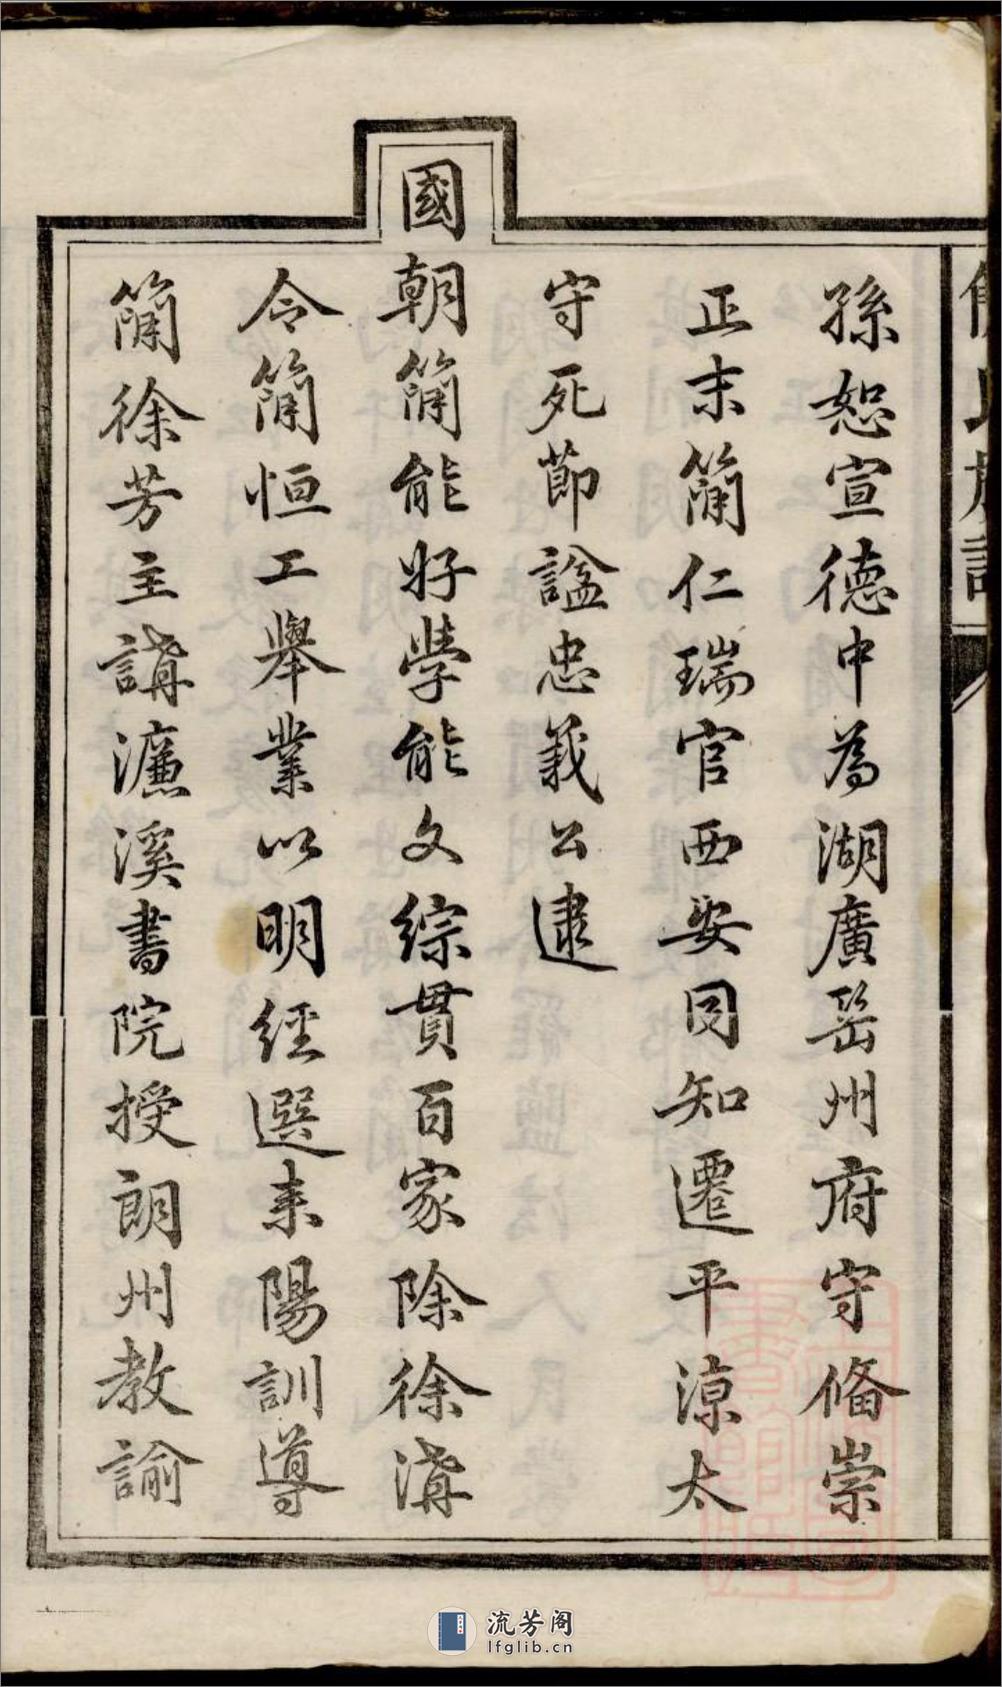 孫恕宣德中為湖廣岳州府守俻崇
正末簡仁瑞官西安同知遷平涼太
守死節諡忠義公逮
國朝簡能好學能文綜貫百家除徐溝
令簡恒工舉業以明經選耒陽訓導
簡徐芳主講濂溪書院授朗州教諭
流芳阁
lfglib.cn